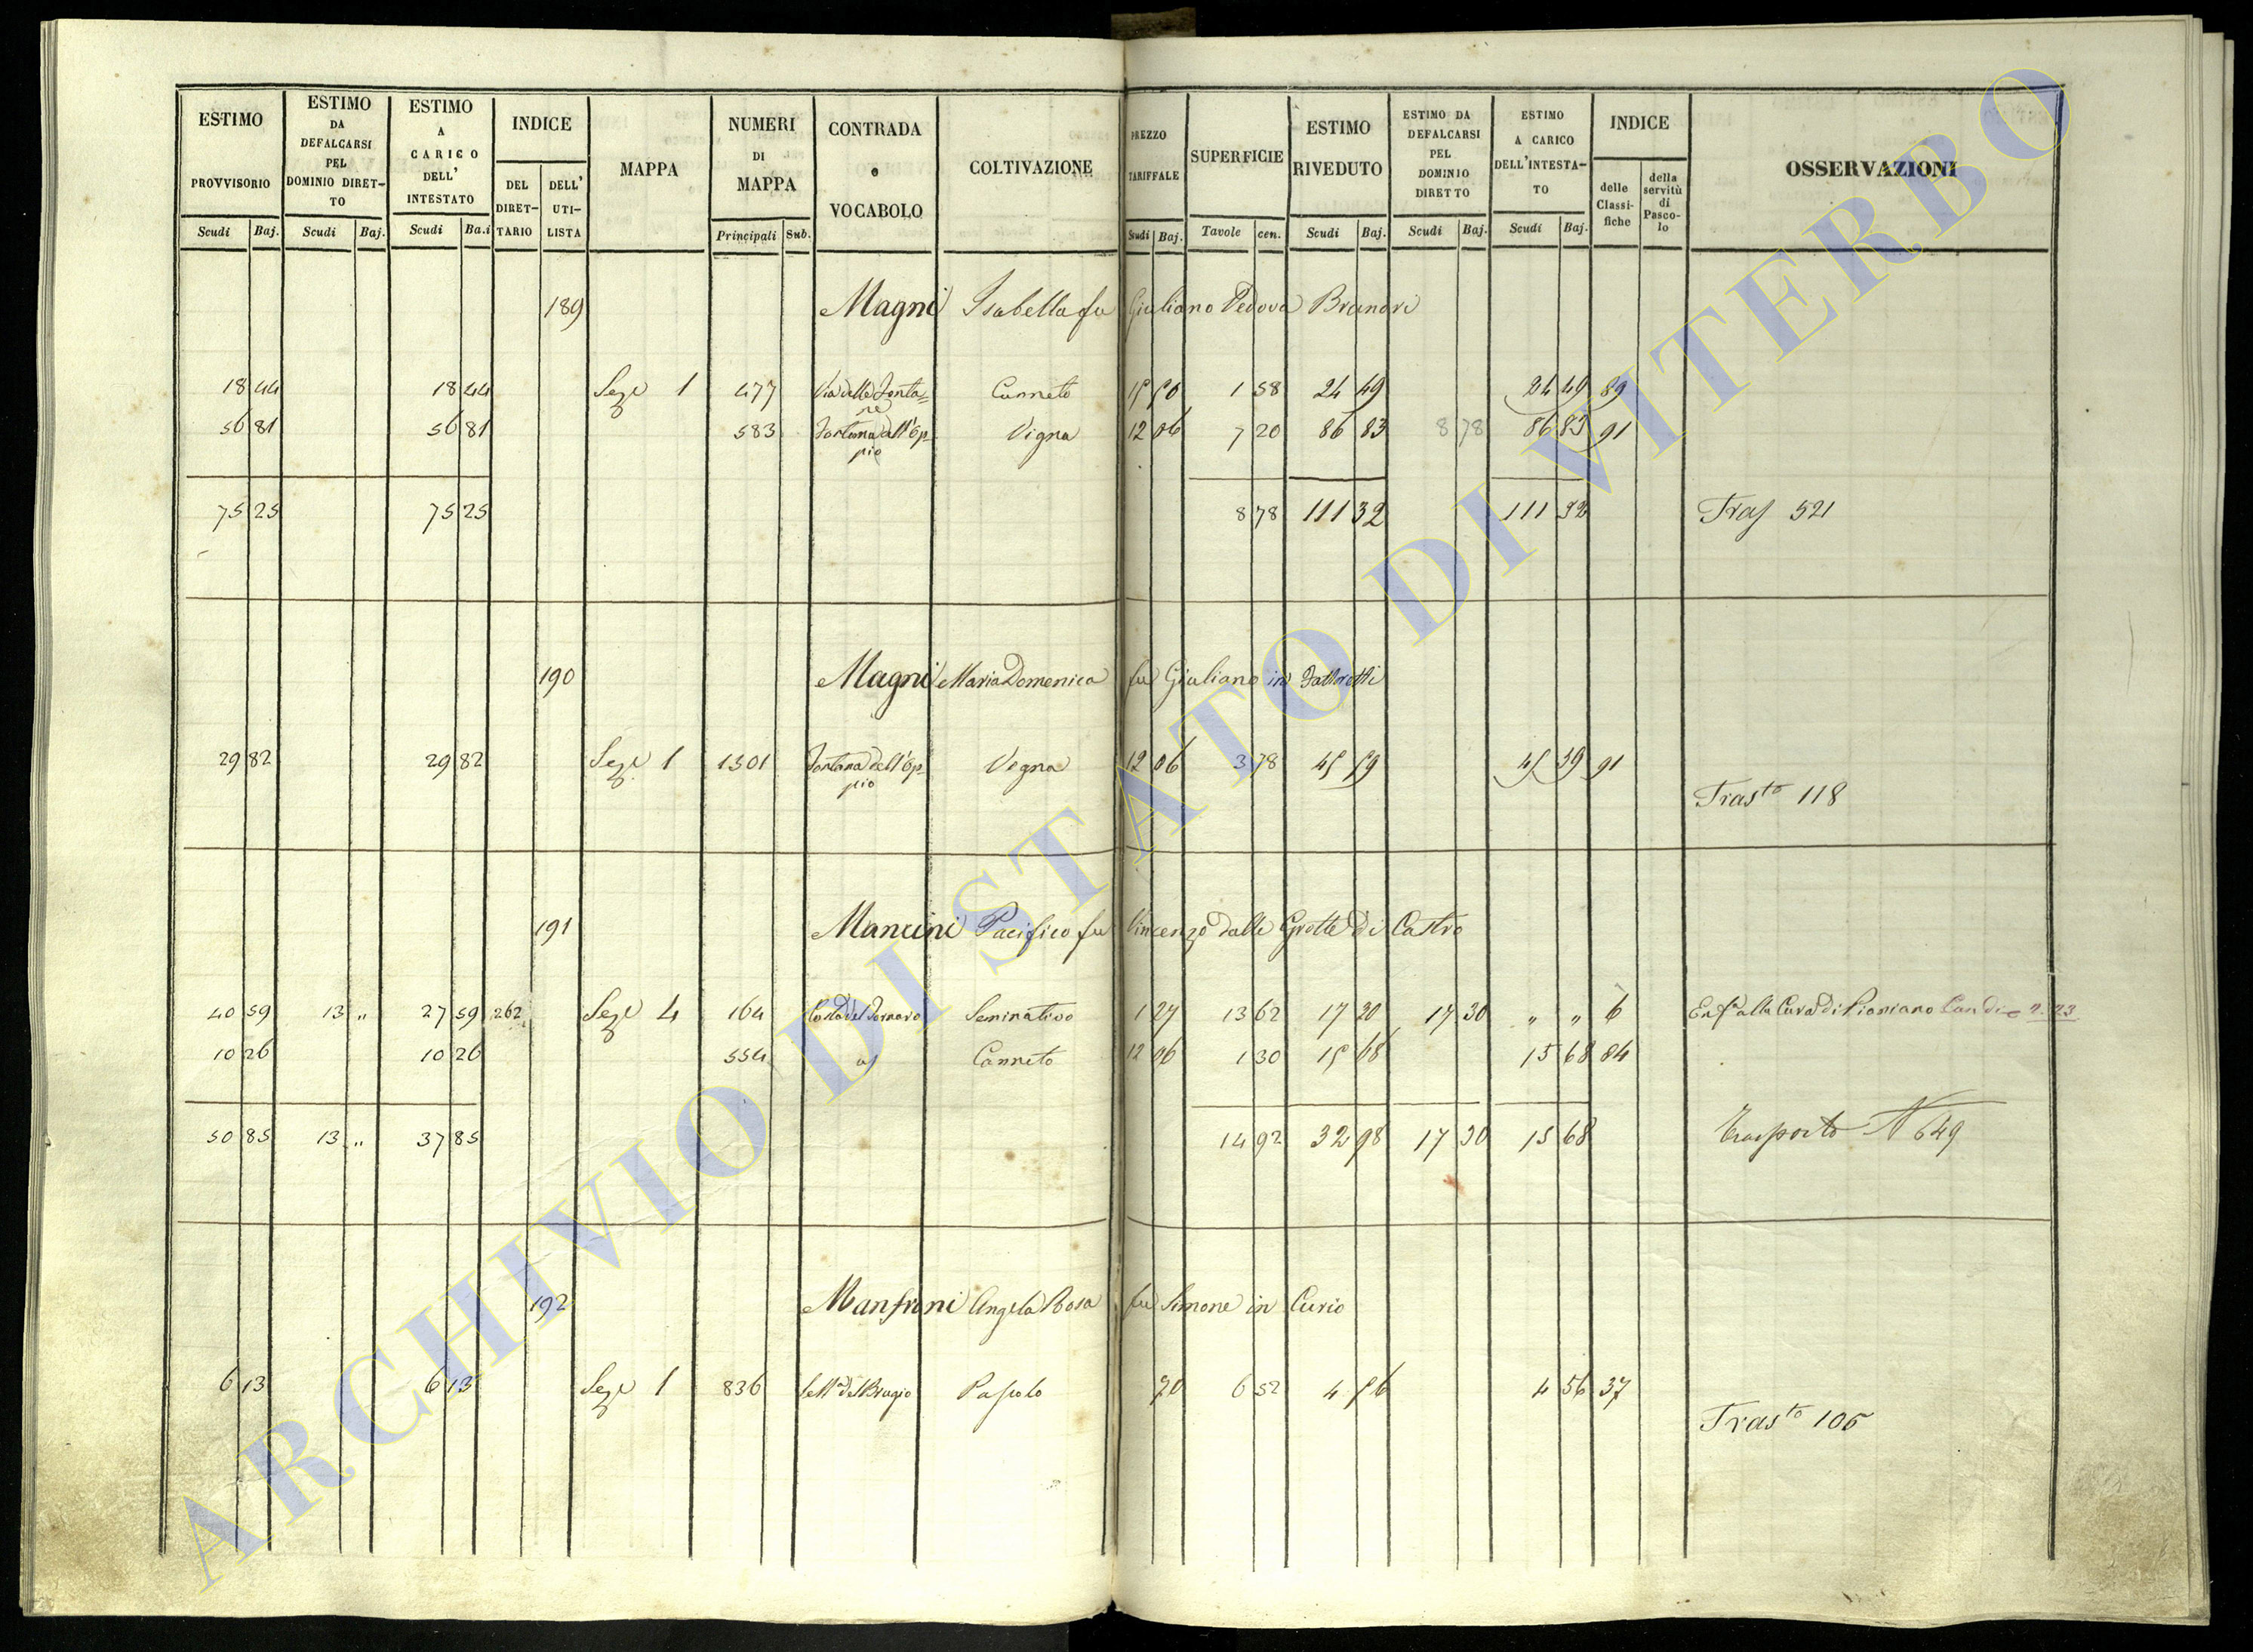 ESTIMO PROVVISORIO Scudi Baj. | ESTIMO DA DEFALCARSI PEL DOMINIO DIRET-TO Scudi Baj. | ESTIMO A CARICO DELL' INTESTATO Scudi Ba.i | INDICE DEL DIRET-TARIO DELL' UTI-LISTA | MAPPA | NUMERI DI MAPPA Principali Sub. | CONTRADA o VOCABOLO | COLTIVAZIONE | PREZZO TARIFFALE Scudi Baj. | SUPERFICIE Tavole cen. | ESTIMO RIVEDUTO Scudi Baj. | ESTIMO DA DEFALCARSI PEL DOMINIO DIRETTO Scudi Baj. | ESTIMO A CARICO DELL'INTESTA-TO Scudi Baj. | INDICE delle Classi-fiche della servitù di Pasco-lo | OSSERVAZIONI
189 Magni Isabella fu Giuliano Vedova Brandri
18 44 18 44 Sez.e 1 477 Via delle Fonta=ne Canneto 15 50 1 58 24 49 24 49 89
56 81 56 81 583 Fontana dell'Op-pio Vigna 12 06 7 20 86 83 8 78 86 83 91
75 25 75 25 8 78 111 32 111 32 Tras 521
190 Magni Maria Domenica fu Giuliano in
29 82 29 82 Sez.e 1 1301 Fontana dell'Op-pio Vigna 12 06 3 78 45 59 45 59 91
Tras.to 118
191 Mancini Pacifico fu Vincenzo dalle Grotte di Castro
40 59 13 „ 27 59 262 Sez.e 4 164 Costa del Fornaro Seminativo 1 27 13 62 17 30 17 30 „ „ 6 Enf.a alla Cura di Pianiano
10 26 10 26 554 Canneto 12 06 1 30 15 68 15 68 84
50 85 13 „ 37 85 14 92 32 98 17 30 15 68 Trasporto N 649
192 Manfreni Angela Rosa fu Simone in Curio
6 13 6 13 Sez.e 1 836 Pascolo 70 6 52 4 56 4 56 37
Tras.to 105
ARCHIVIO DI STATO DI VITERBO